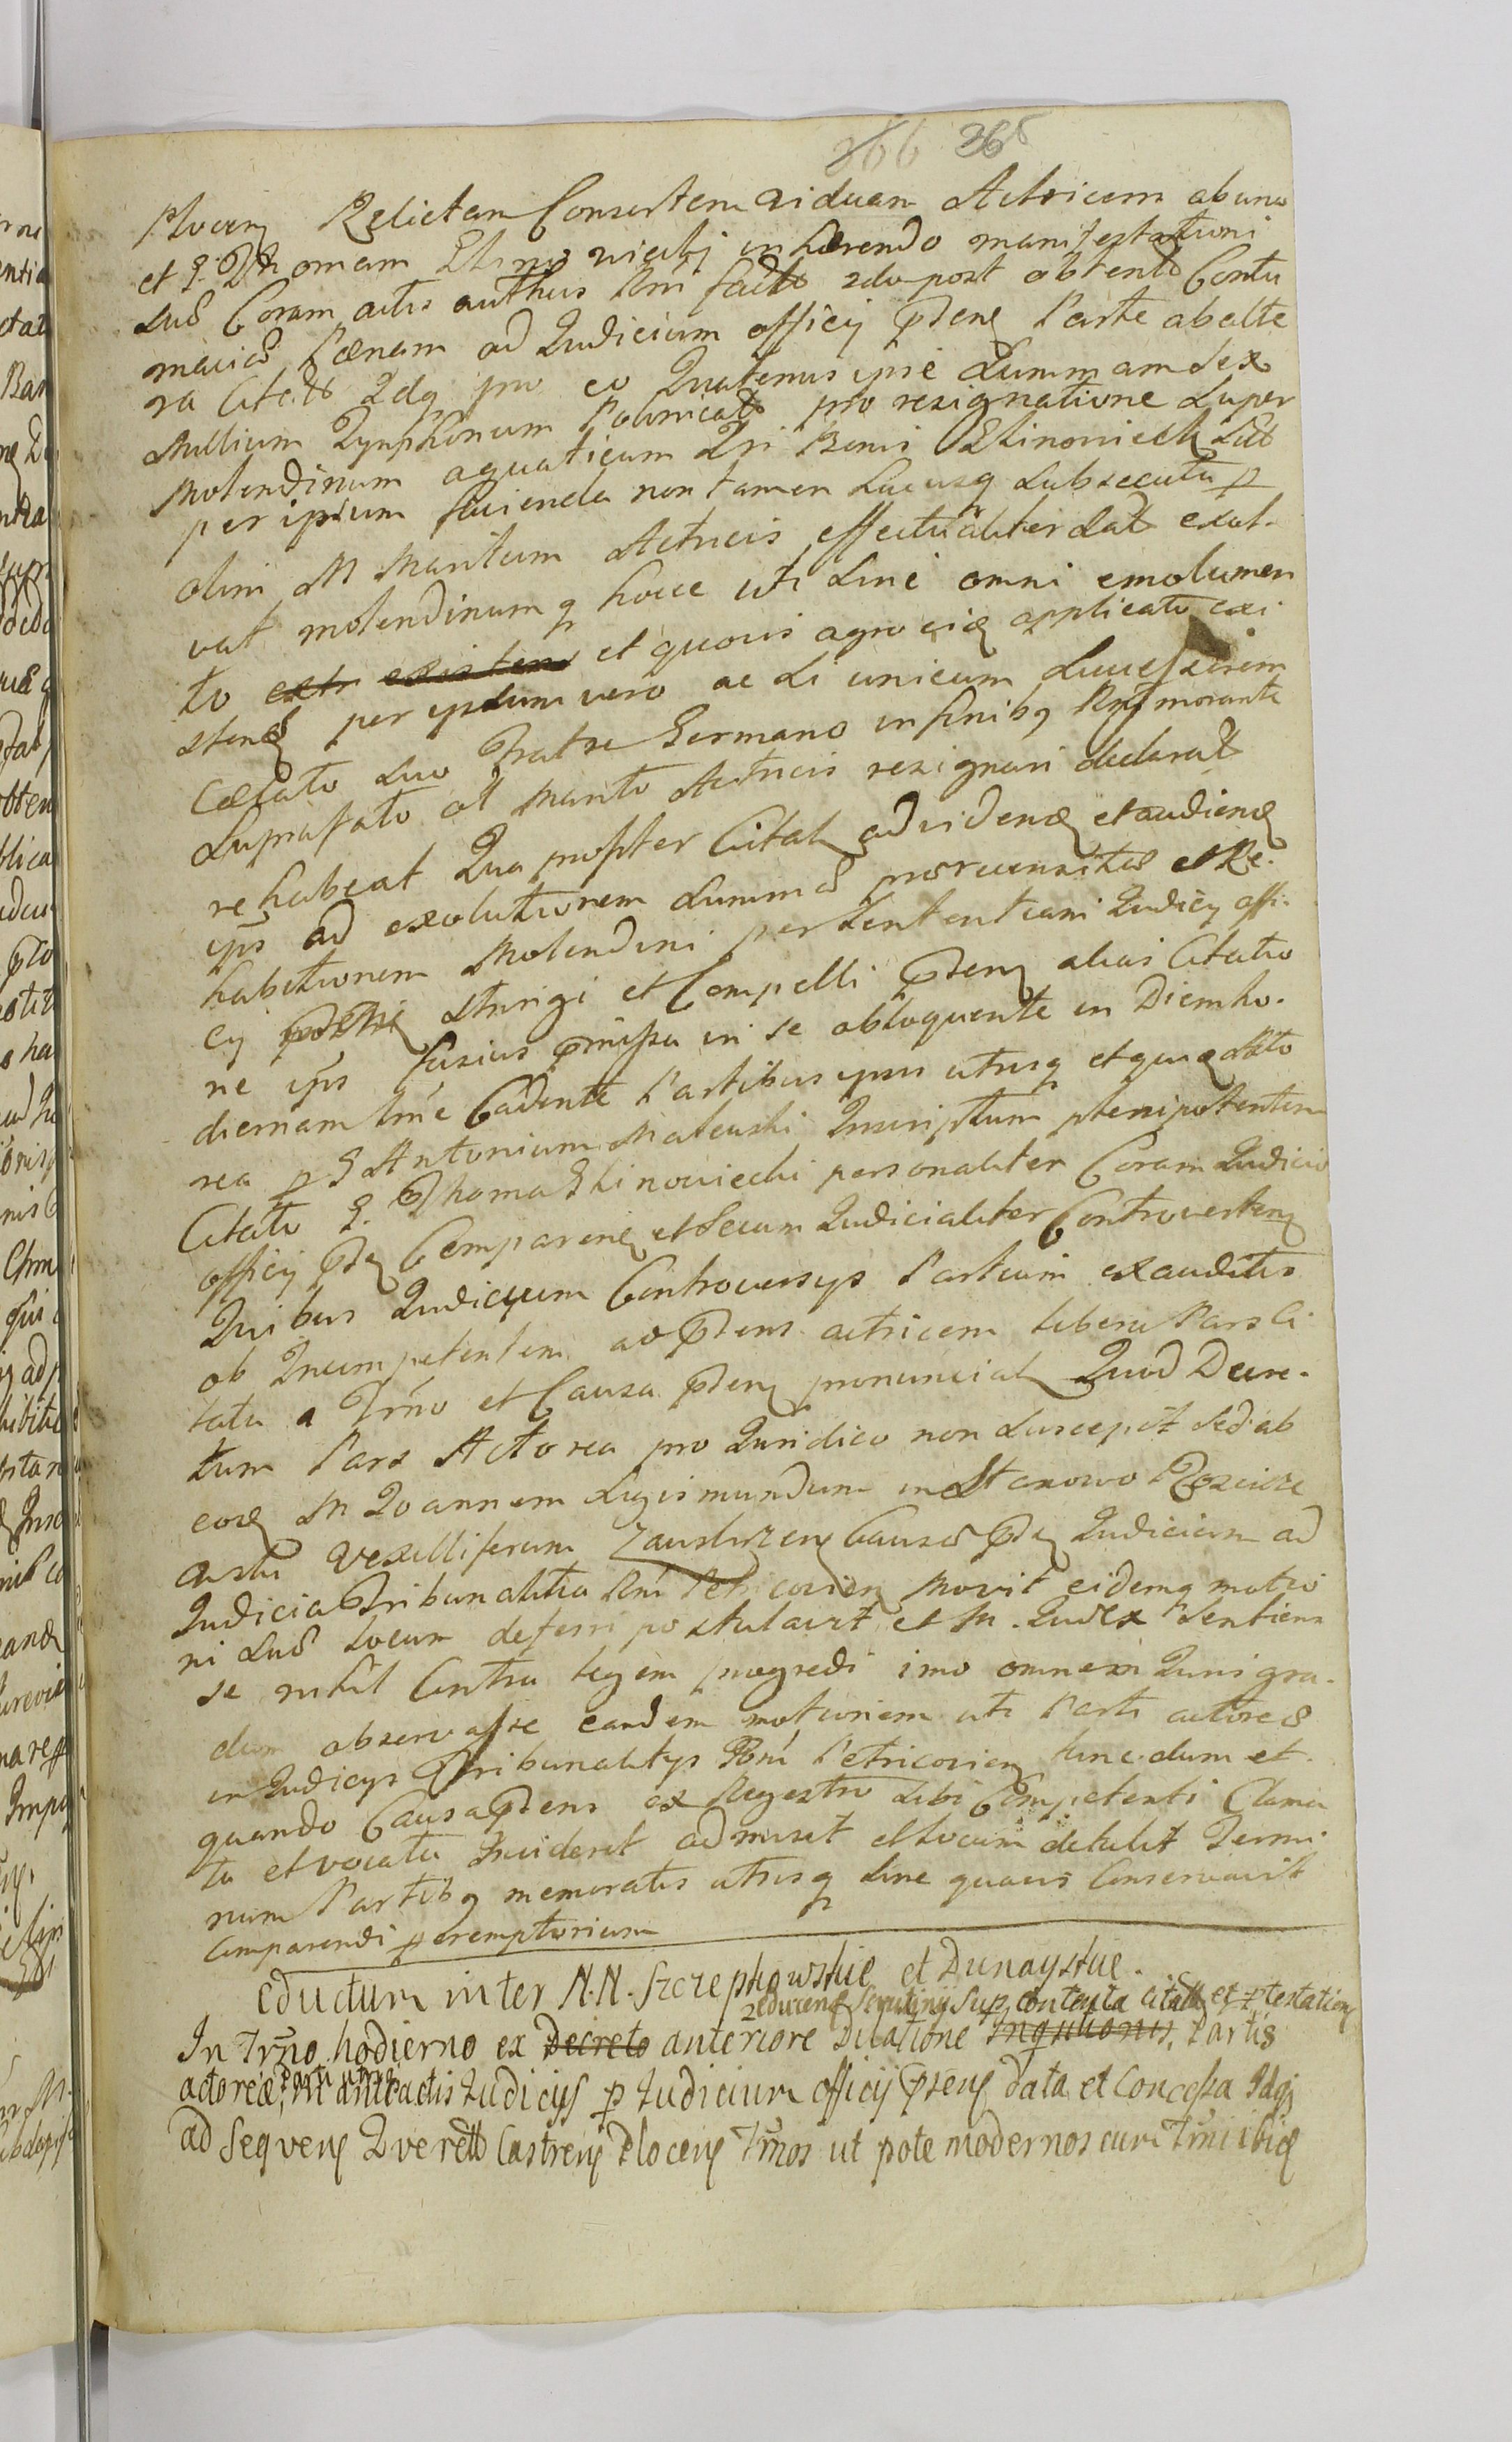 366 368
Plocen Relictam Consortem viduam Actricem ab una
et G. Thomam Glinowiecki inhærendo manifestationi
suæ Coram actis authus Rni factæ 2do post obtentæ Contu
maciæ Pœnam ad Judicium officij pñens Parte ab alte
ra Citatæ Idq pro eo Quatenus ipse Summam sex
Millium Tynphonum Polonicalt pro resignatione super
Molendinum aquaticum Dri Boni Glinowieck sibi
per ipsum facienda non tamen hucusq subsecuta p
olim M Maritum Actricis effectualiter dat exol-
vat molendinumq hocce uti sine omni emolumen
to extr existens et quovis agro eidem applicato exi
stens per ipsum vero ac si unicum successorem
Cælato suo Fratre Germano in finibq Rni morante
suprafato oli Marito Actricis resignari declarat
rehabeat Qua propter Citat ad videnq et audienq
ips ad exolutionem summæ prærecensitæ et Re-
habitionem Molendini per sententiam Judicij offi-
cij pñstris stringi et Compelli pñens alias Citatio
ne ips fusius pmissa in se obloquente in Diem ho-
diernam Tme Cadente Partibus ipsis utrisq et quidem Acto
rea p G Antonium Makuski Inscriptum plenipotentem
Citato G. Thoma Glinowiecki personaliter Coram Judicio
officij pñ Comparens et secum Judicialiter Controvertens
Quibus Judicium Controversys Partium exauditis
ob Incompetentem ad pñens actricem liberu Pars Ci
tata a Trño et Causa pñens pronunciat Quod Decre-
tum Pars Actorea pro Juridico non suscepit sed ab
eoq M Joannem Sigismundum in Staxowo Roscisze
wski Vexilliferum Zawskrzens Causæ pñ Judicium ad
Judicia Tribunalitia Rni Petricovien Movit eidemq motio
ni suæ locum deferri postulavit et M. Judex sentiens
se nihil Contra legem progredi imo omnem Juri gra-
dum observasse eandem motionem uti Parti actoreæ
in Judicijs Tribunalitijs Rni Petricovien tunc dum et
quando Causa pñens ex Regestro sibi Competenti Clama
ta et vocata Inciderit admisit et locum detulit Termi
num Partibq memoratis utrisq sine quavis Conservavit
Comparendi peremptorium
Eductum inter N.N. Szczepkowskie et Dunayskie.
2educens scrutinij sup contenta citatt et ptestations
In Trño hodierno ex Decreto anteriore Dilatione Inquisitionis, Partis
actoreæ, Parti utriq in anteactis Judicijs p Judicium officij pñens data et Concessa Idq
ad Sequens Queretts Castrens Plocens Trmos ut pote modernos cum Trmi ibiq